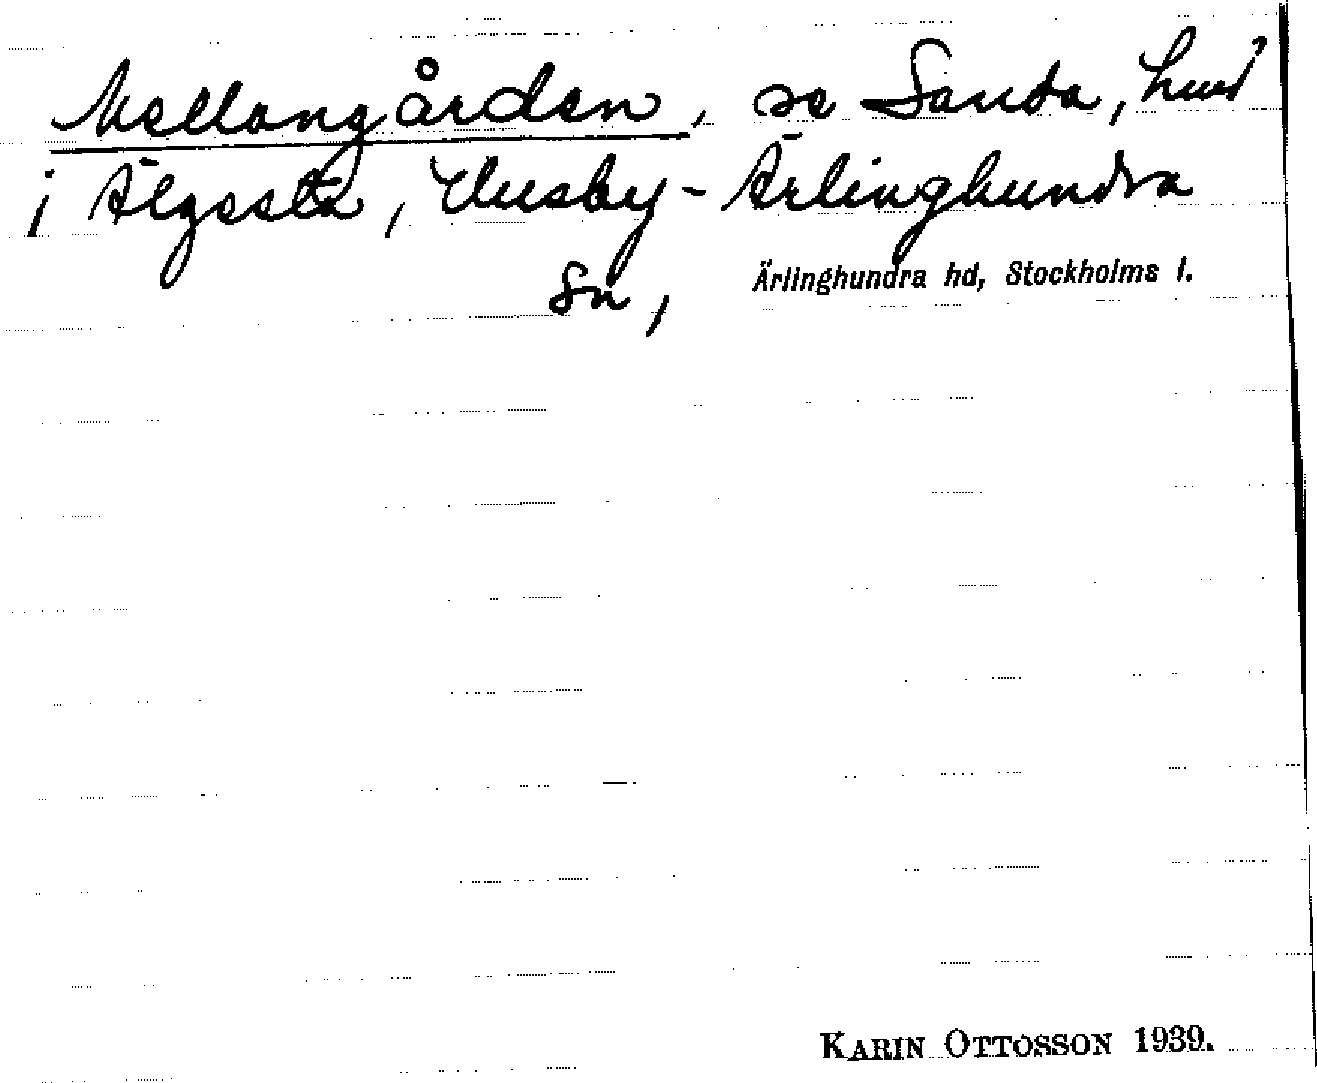 Mellangården, se Santa, hmd
i Älgesta, Husby-Ärlinghundra
Sn, Ärlinghundra hd, Stockholms l.
KARIN OTTOSSON 1939.